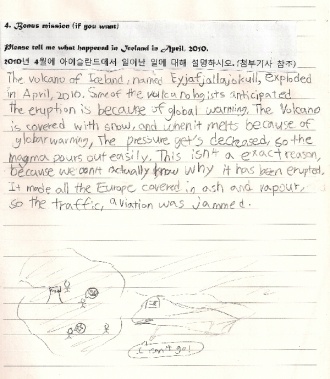 4. Bonus mission (if you want)
Please tell me what happened in Iceland in April, 2010.
2010년 4월에 아이슬란드에서 일어난 일에 대해 설명하시오. (첨부기사 참조)
The volcano of Iceland, named Eyjafjallajokull, exploded
in April, 2010. Some of the volcanologists anticipated
the eruption is because of global warming. The Volcano
is covered with snow, and when it melts because of
global warming, The pressure get's decreased, so the
magma pours out easily. This isn't a exact reason,
because we don't actually know why it has been erupted.
It made all the Europe covered in ash and vapour,
so the traffic, aviation was jammed.
I can't go!